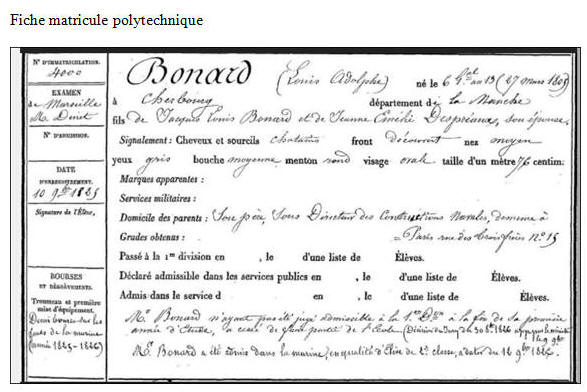 Fiche matricule polytechnique
N° D'IMMATRICULATION.
4000
EXAMEN
de Marseille
M. Dinet
N° D'ADMISSION.
DATE
D'ENREGISTREMENT.
10 9bre 1825
Signature de l'Élève,
BOURSES
ET
DÉGRÈVEMENTS.
Trousseau et première
mise d'équipement.
Demi bourse sur les
fonds de la marine
(année 1825-1826)
Bonard (Louis Adolphe) né le 6 Gal an 13 (27 mars 1805)
à Cherbourg département de la Manche
fils de Jacques Louis Bonard et de Jeanne Despréaux, son épouse.
Signalement : Cheveux et sourcils chatains front découvert nez moyen
yeux gris bouche moyenne menton rond visage ovale taille d'un mètre 76 centim.
Marques apparentes :
Services militaires :
Domicile des parents : Son père, Sous Directeur des Constructions Navales, demeure à
Grades obtenus : = Paris rue des trois frères N° 15
Passé à la 1re division en , le d'une liste de Élèves.
Déclaré admissible dans les services publics en , le d'une liste de Élèves.
Admis dans le service d en , le d'une liste de Élèves.
Mr Bonard n'ayant pas été jugé admissible à la 1re Don à la fin de sa première
année d'Etude, a cessé de faire partie de l'Ecole (Décision du Jury du 30 8bre 1826
Mr Bonard a été admis dans la marine, en qualité d'Elève de 2e classe, à dater du 16 9bre 1826.